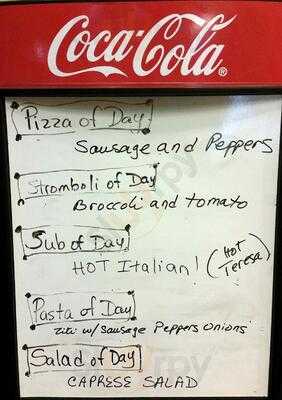 Coca-Cola®
Pizza of Day
Sausage and Peppers
Stromboli of Day
Broccoli and tomato
Sub of Day
HOT Italian! (HOT Teresa)
Pasta of Day
Ziti w/ Sausage Peppers Onions
Salad of Day
CAPRESE SALAD